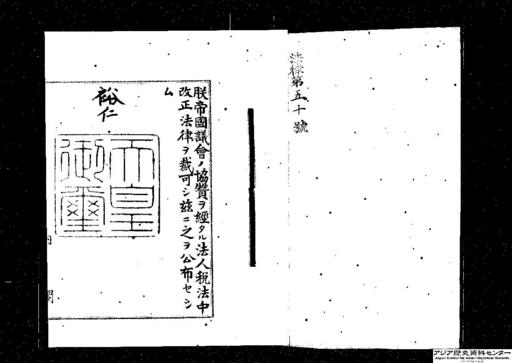 法律第五十號
朕帝國議會ノ協贊ヲ經タル法人稅法中
改正法律ヲ裁可シ茲ニ之ヲ公布セシ
ム
裕仁
天皇
御璽
内閣
アジア歴史資料センター
Japan Center for Asian Historical Records